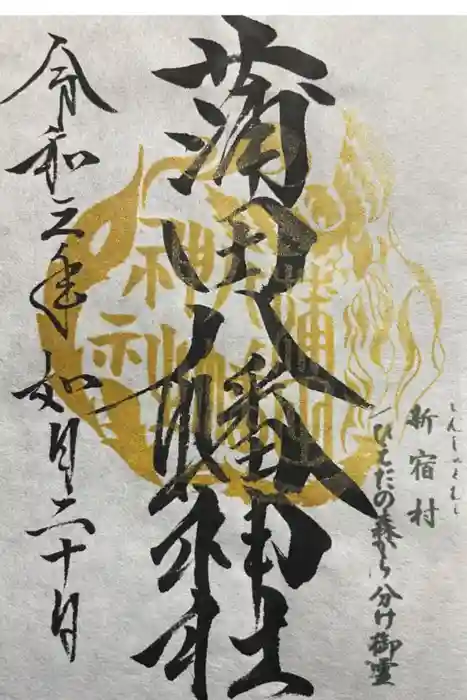 新宿村
しんしゅくむら
ひえだの森から分け御霊
蒲田八幡神社
蒲田
八幡
神社
令和三年如月二十日